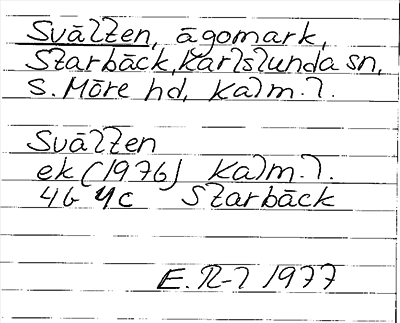 Svälten, ägomark,
Starbäck, Karlslunda sn,
S. Möre hd, Kalm.l.
Svälten
ek (1976) Kalm.l.
4G 4c Starbäck
E. R-l 1977